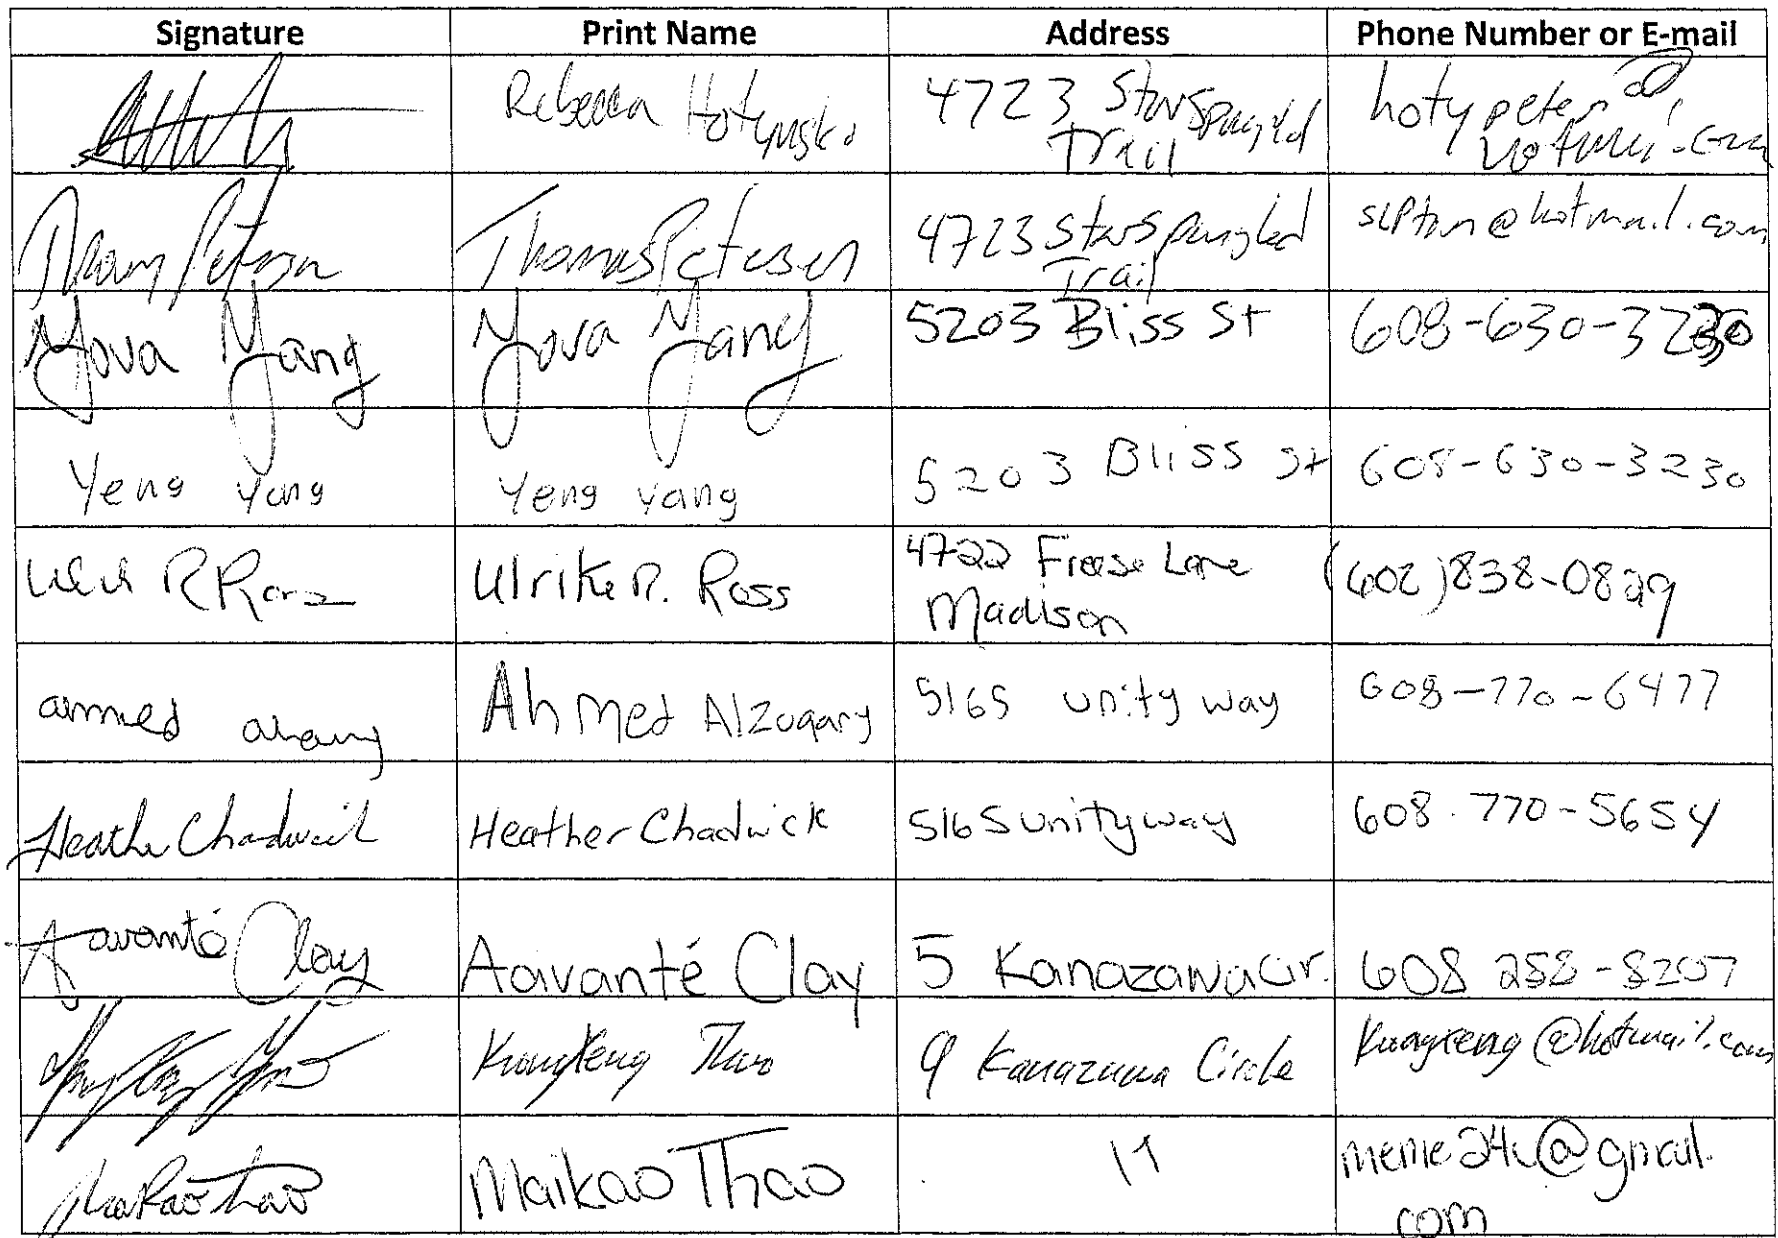 Signature Print Name Address Phone Number or E-mail
Rebecca 4723 Star Spangled Trail hotypeter@
Thomas Petersen 4723 Star Spangled Trail @hotmail.com
Yova Yang Yova Yang 5203 Bliss St 608-630-3230
Yeng Yang Yeng Yang 5203 Bliss St 608-630-3230
Ulrike R. Ross 4722 Freese Lane (602)838-0829
Madison
Ahmed Alzuqary 5165 unity way 608-770-6477
Heather Chadwick Heather Chadwick 5165 unity way 608.770-5654
Aavanté Clay Aavanté Clay 5 Kanazawa Cir. 608 258-8207
Thao 9 Kanazawa Circle @hotmail.com
Maikao Thao Maikao Thao 11 @gmail.
com